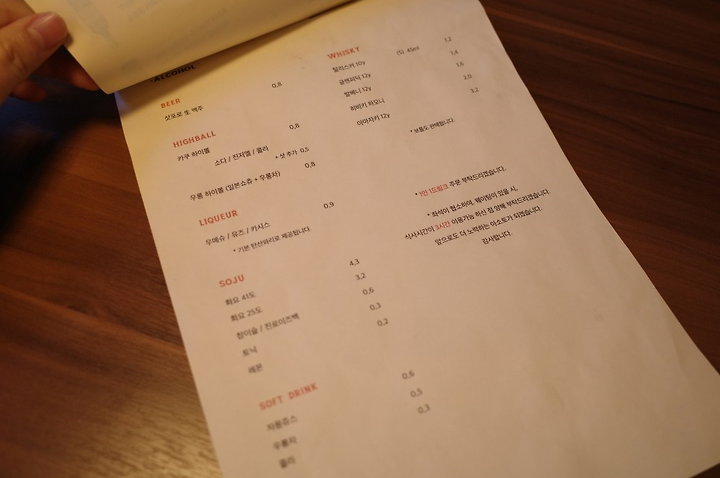 ALCOHOL
BEER
삿포로 生 맥주 0,8
HIGHBALL
카쿠 하이볼 0,8
소다 / 진저엘 / 콜라
* 샷 추가 0,5
우롱 하이볼 (일본소츄 + 우롱차) 0,8
LIQUEUR
우메슈 / 유즈 / 카시스 0,9
* 기본 탄산와리로 제공됩니다.
SOJU
화요 41도 4,3
화요 25도 3,2
참이슬 / 진로이즈백 0,6
토닉 0,3
레몬 0,2
SOFT DRINK
자몽쥬스 0,6
우롱차 0,5
콜라 0,3
WHISKY (S) 45ml
탈리스커 10y 1,2
글렌피딕 12y 1,4
발베니 12y 1,6
히비키 하모니 2,0
야마자키 12y 3,2
* 보틀도 판매합니다.
* 1인 1드링크 주문 부탁드리겠습니다.
* 좌석이 협소하여, 웨이팅이 있을 시,
식사시간이 3시간 이용가능 하신 점 양해 부탁드리겠습니다.
앞으로도 더 노력하는 아소토가 되겠습니다.
감사합니다.